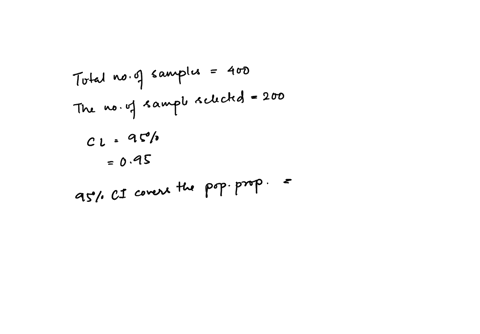 Total no. of samples = 400
The no. of sample selected = 200
CL = 95%
= 0.95
95% CI covers the pop. prop. =